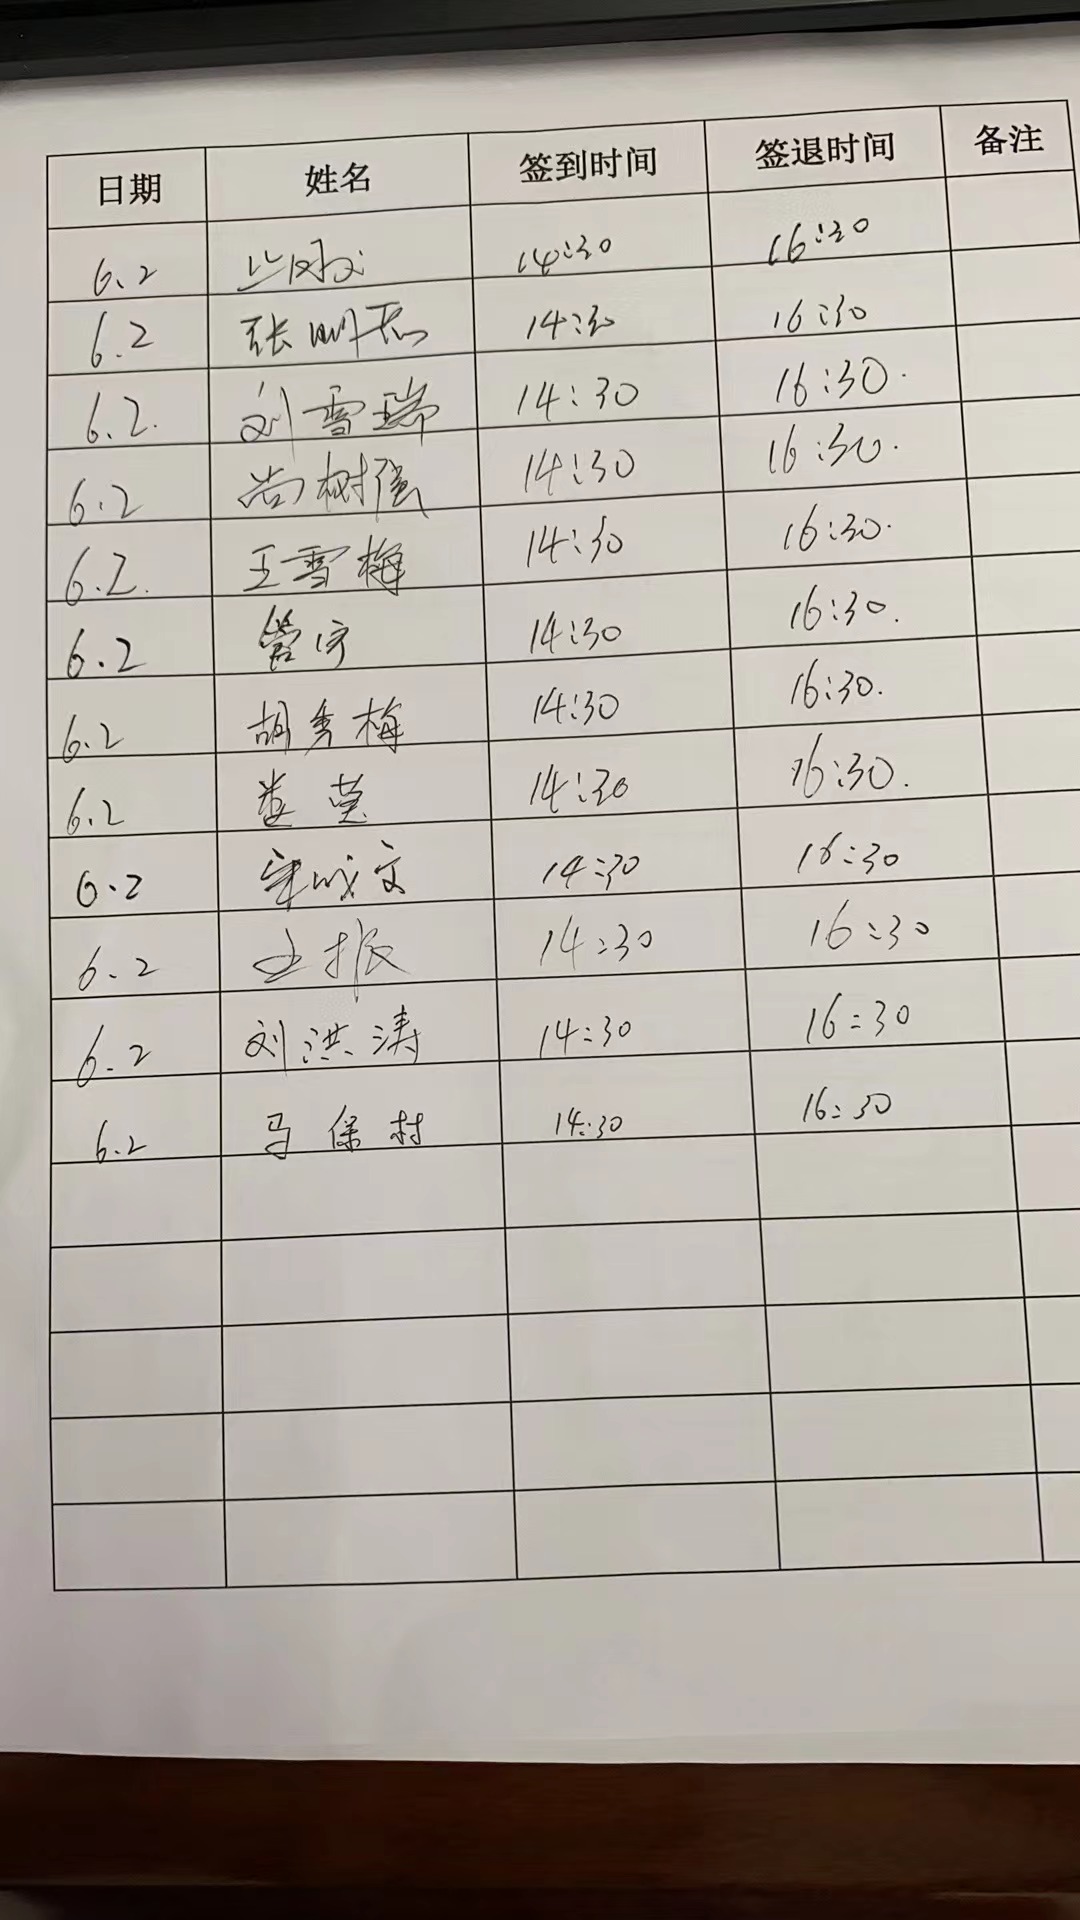 日期 姓名 签到时间 签退时间 备注
6.2 14:30 16:30
6.2 张明志 14:30 16:30
6.2. 刘雪瑞 14:30 16:30.
6.2 尚树强 14:30 16:30.
6.2. 王雪梅 14:30 16:30.
6.2 管宇 14:30 16:30.
6.2 胡秀梅 14:30 16:30.
6.2 14:30 16:30.
6.2 宋成文 14:30 16:30
6.2 王振 14:30 16:30
6.2 刘洪涛 14:30 16:30
6.2 马保村 14:30 16:30